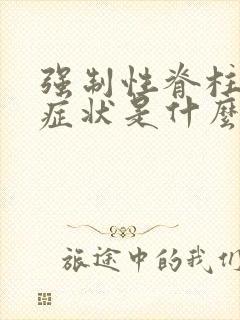 强制性脊柱
症状是什麼
旅途中的我们